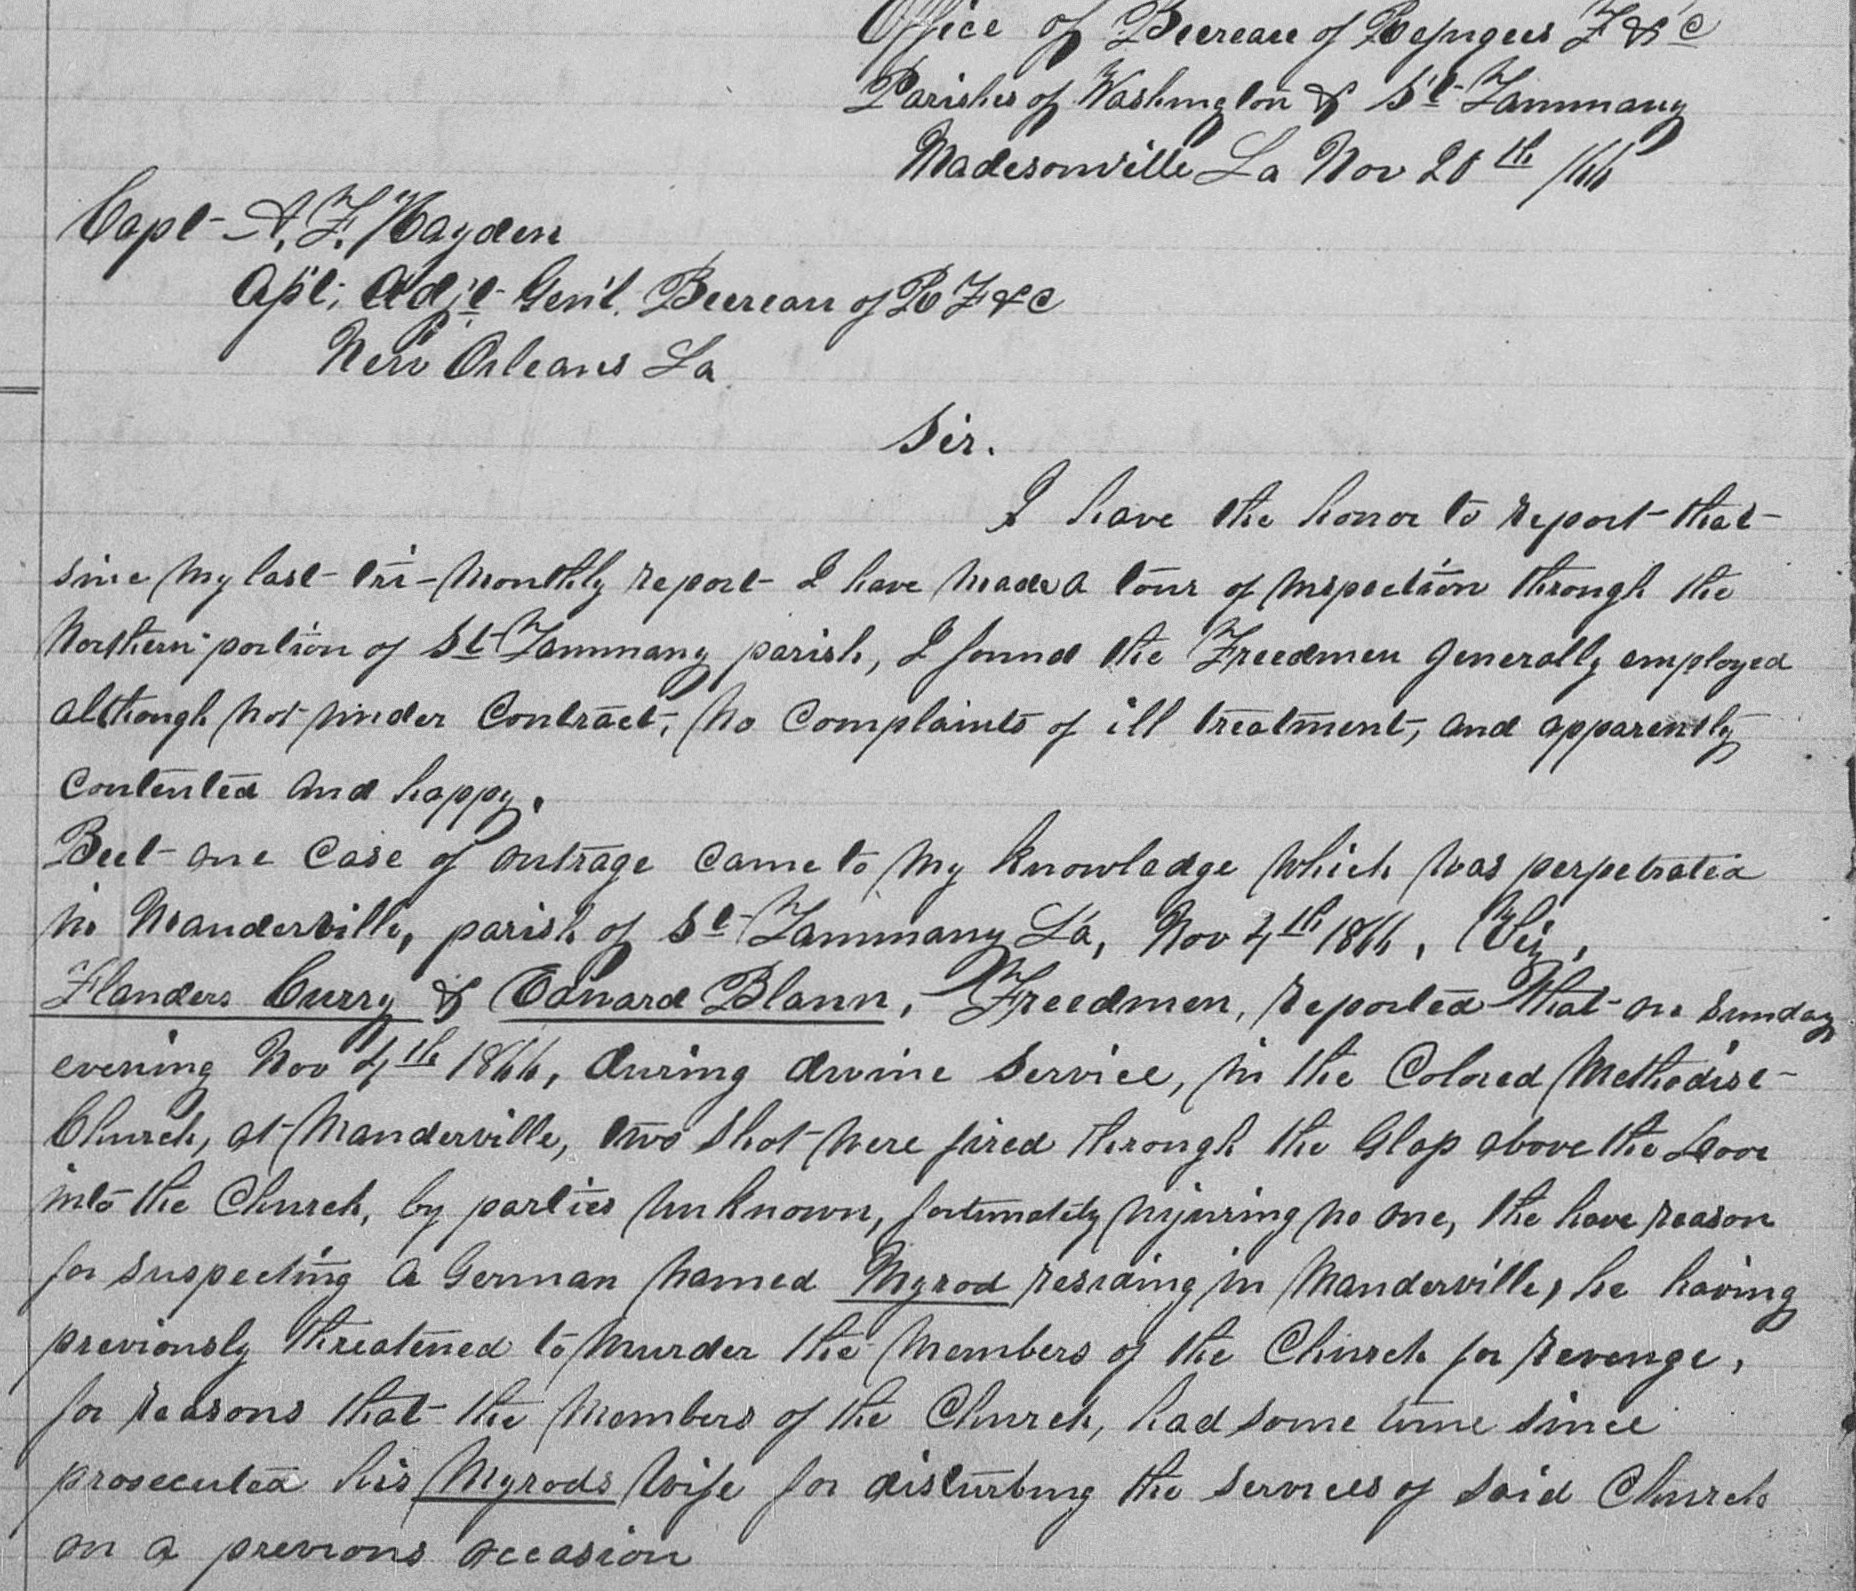 Office of Bureau of Refugees F & c
Parishes of Washington & St Tammany
Madesonville La Nov 20th /66
Capt A. F. Hayden
Apt. Adjt Gen'l. Bureau of R F & c
New Orleans La
Sir.
I have the honor to report that
since my last tri-monthly report I have made a tour of inspection through the
Northern portion of St Tammany parish, I found the Freedmen generally employed
although not under Contract, no complaints of ill treatment, and apparently
contented and happy.
But one case of outrage came to my knowladge which was perpetrated
in Manderville, parish of St Tammany La, Nov 4th 1866, Viz,
Flanders Curry & Edward Blann, Freedmen, reported that on Sunday
evening Nov 4th 1866, during divine Service, in the Colored Methodist
Church, at Manderville, two shot were fired through the Glass above the Door
into the Church, by parties unknown, fortunately injuring no one, the have reason
for suspecting a German named Myrod residing in Manderville, he having
previously threatened to murder the Members of the Church for revenge,
for reasons that the Members of the Church, had some time since
prosecuted his Myrods Wife for disturbing the services of said Church
on a previous occasion